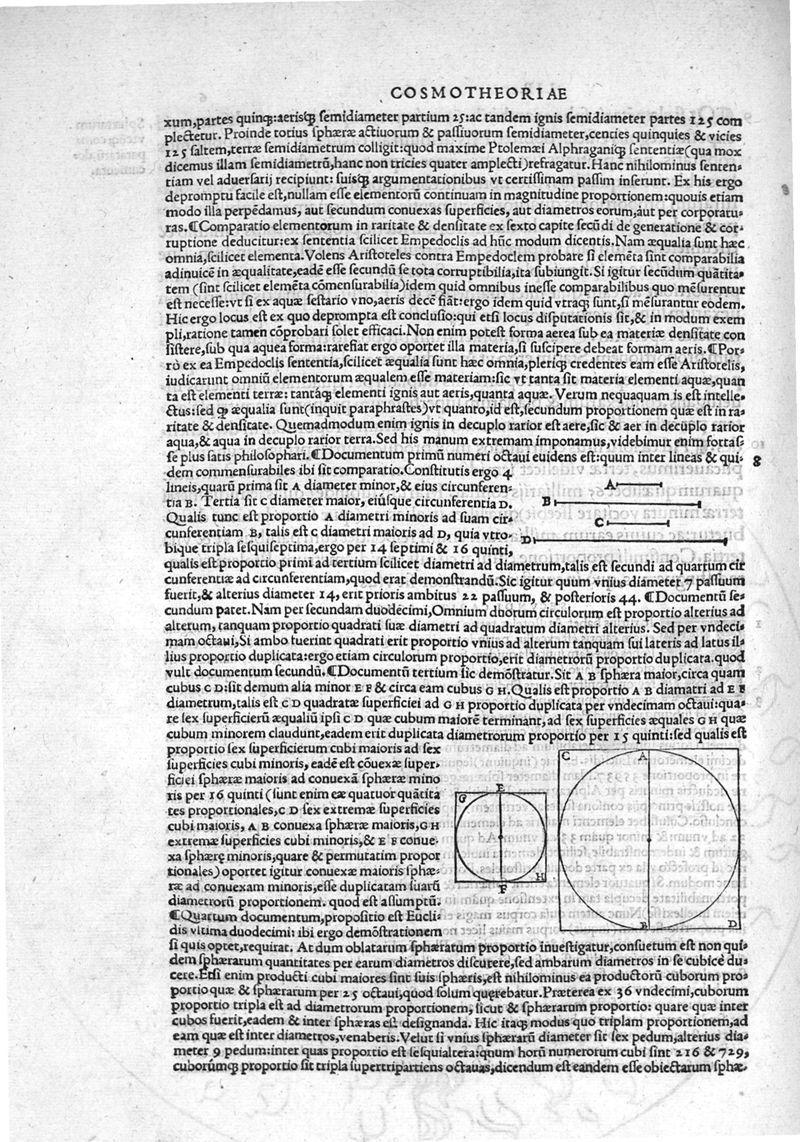 COSMOTHEORIAE
xum,partes quinq;:aerisq; semidiameter partium 25:ac tandem ignis semidiameter partes 125 com
plectetur. Proinde totius sphæræ actiuorum & passiuorum semidiameter,centies quinquies & vicies
125 saltem,terræ semidiametrum colligit:quod maxime Ptolemæi Alphraganiq; sententiæ(qua mox
dicemus illam semidiametrū,hanc non tricies quater amplecti)refragatur. Hanc nihilominus senten-
tiam vel aduersarij recipiunt: suisq; argumentationibus vt certissimam passim inserunt. Ex his ergo
depromptu facile est,nullam esse elementorū continuam in magnitudine proportionem:quouis etiam
modo illa perpēdamus, aut secundum conuexas superficies, aut diametros eorum,aut per corporatu-
ras.¶Comparatio elementorum in raritate & densitate ex sexto capite secūdi de generatione & cor-
ruptione deducitur:ex sententia scilicet Empedoclis ad hūc modum dicentis. Nam æqualia sunt hæc
omnia,scilicet elementa. Volens Aristoteles contra Empedoclem probare si elemēta sint comparabilia
adinuicē in æqualitate,eadē esse secundū se tota corruptibilia,ita subiungit.Si igitur secūdum quātita-
tem (sint scilicet elemēta cōmensurabilia)idem quid omnibus inesse comparabilibus quo mēsurentur
est necesse:vt si ex aquæ sestario vno,aeris decē fiāt:ergo idem quid vtraq; sunt,si mēsurantur eodem.
Hic ergo locus est ex quo deprompta est conclusio:qui etsi locus disputationis sit,& in modum exem
pli,ratione tamen cōprobari solet efficaci. Non enim potest forma aerea sub ea materiæ densitate con
sistere,sub qua aquea forma:rarefiat ergo oportet illa materia,si suscipere debeat formam aeris.¶Por-
rò ex ea Empedoclis sententia,scilicet æqualia sunt hæc omnia,pleriq; credentes eam esse Aristotelis,
iudicarunt omniū elementorum æqualem esse materiam:sic vt tanta sit materia elementi aquæ,quan
ta est elementi terræ: tantáq; elementi ignis aut aeris,quanta aquæ. Verum nequaquam is est intelle-
ctus:sed q; æqualia sunt(inquit paraphrastes)vt quanto,id est,secundum proportionem quæ est in ra-
ritate & densitate. Quemadmodum enim ignis in decuplo rarior est aere,sic & aer in decuplo rarior
aqua,& aqua in decuplo rarior terra.Sed his manum extremam imponamus,videbimur enim fortas-
se plus satis philosophari.¶Documentum primū numeri octaui euidens est:quum inter lineas & qui-
8
dem commensurabiles ibi sit comparatio.Cōstitutis ergo 4
lineis,quarū prima sit A diameter minor,& eius circunferen-
tia B. Tertia sit C diameter maior, eiúsque circunferentia D.
Qualis tunc est proportio A diametri minoris ad suam cir-
cunferentiam B, talis est C diametri maioris ad D, quia vtro-
bique tripla sesquiseptima,ergo per 14 septimi & 16 quinti,
A
B
C
D
qualis est proportio primi ad tertium scilicet diametri ad diametrum,talis est secundi ad quartum cir
cunferentiæ ad circunferentiam,quod erat demonstrandū.Sic igitur quum vnius diameter 7 passuum
fuerit,& alterius diameter 14, erit prioris ambitus 22 passuum, & posterioris 44. ¶Documentū se-
cundum patet. Nam per secundam duodecimi,Omnium duorum circulorum est proportio alterius ad
alterum, tanquam proportio quadrati suæ diametri ad quadratum diametri alterius. Sed per vndeci-
mam octaui,Si ambo fuerint quadrati erit proportio vnius ad alterum tanquam sui lateris ad latus il-
lius proportio duplicata:ergo etiam circulorum proportio,erit diametrorū proportio duplicata.quod
vult documentum secundū.¶Documentū tertium sic demōstratur. Sit A B sphæra maior,circa quam
cubus C D:sit demum alia minor E F & circa eam cubus G H.Qualis est proportio A B diamatri ad E F
diametrum,talis est C D quadratæ superficiei ad G H proportio duplicata per vndecimam octaui:qua-
re sex superficierū æqualiū ipsi C D quæ cubum maiorē terminant,ad sex superficies æquales G H quæ
cubum minorem claudunt,eadem erit duplicata diametrorum proportio per 15 quinti:sed qualis est
proportio sex superficierum cubi maioris ad sex
superficies cubi minoris, eadē est cōuexæ super-
ficiei sphæræ maioris ad conuexā sphæræ mino
ris per 16 quinti (sunt enim eæ quatuor quātita
tes proportionales,C D sex extremæ superficies
cubi maioris, A B conuexa sphæræ maioris,G H
extremæ superficies cubi minoris,& E F conue-
xa sphæræ minoris,quare & permutatim propor
tionales) oportet igitur conuexæ maioris sphæ-
ræ ad conuexam minoris,esse duplicatam suarū
diametrorū proportionem. quod est assumptū.
¶Quartum documentum,propositio est Eucli-
dis vltima duodecimi: ibi ergo demōstrationem
G
E
H
F
C
A
B
D
si quis optet,requirat. At dum oblatarum sphærarum proportio inuestigatur,consuetum est non qui-
dem sphærarum quantitates per earum diametros discutere,sed ambarum diametros in se cubicè du-
cere.Etsi enim producti cubi maiores sint suis sphæris,est nihilominus ea productorū cuborum pro-
portio quæ & sphærarum per 25 octaui,quod solum quęrebatur.Præterea ex 36 vndecimi,cuborum
proportio tripla est ad diametrorum proportionem, sicut & sphærarum proportio: quare quæ inter
cubos fuerit,eadem & inter sphæras est designanda. Hic itaq; modus quo triplam proportionem,ad
eam quæ est inter diametros,venaberis. Velut si vnius sphærarū diameter sit sex pedum,alterius dia-
meter 9 pedum:inter quas proportio est sesquialtera:quum horū numerorum cubi sint 216 & 729,
cuborúmq; proportio sit tripla supertripartiens octauas,dicendum est eandem esse obiectarum sphæ-